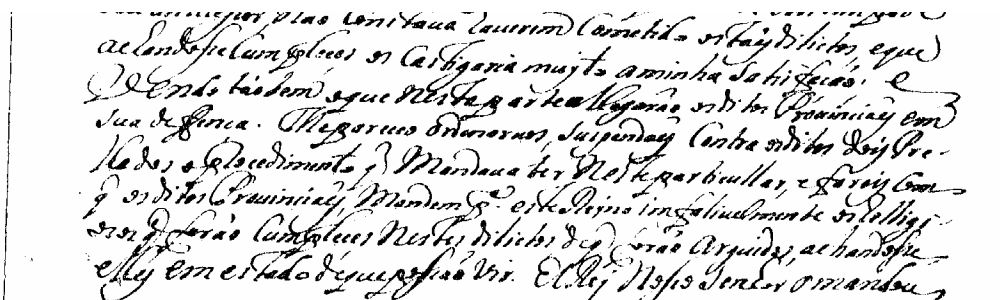 não constava haverem Cometido estes dilictos, eque
achandosse Cumpleces os Castigaria muyto aminha satisfação; e
Vendo tãobem oque nesta parte allegarão os ditos Provinciais em
sua defença. Me pareceo ordenarvos, suspendais Contra os ditos dous Pre-
lados o procedimento q Mandava ter Neste particullar, e fareis Com
q os ditos Provinciais Mandem pª. este Reyno infalivelmente os Relligi-
osos q forão Cumpleces Nestes dilictos de q forão Arguidos, achandosse
elles em estado de que possão vir. El Rey Nosso Senhor o mandou